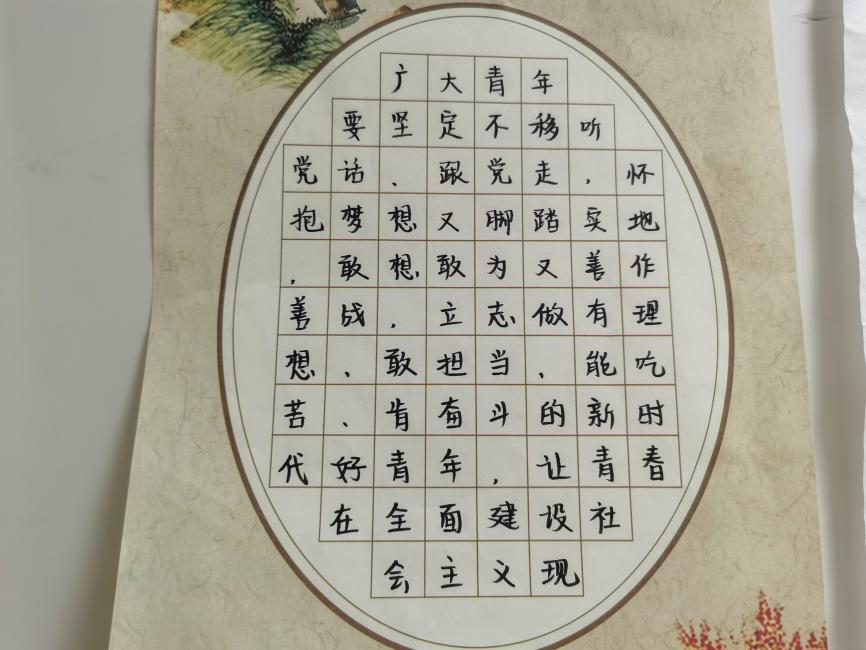 广大青年
要坚定不移听
党话、跟党走，怀
抱梦想又脚踏实地
，敢想敢为又善作
善战，立志做有理
想、敢担当、能吃
苦、肯奋斗的新时
代好青年，让青春
在全面建设社
会主义现